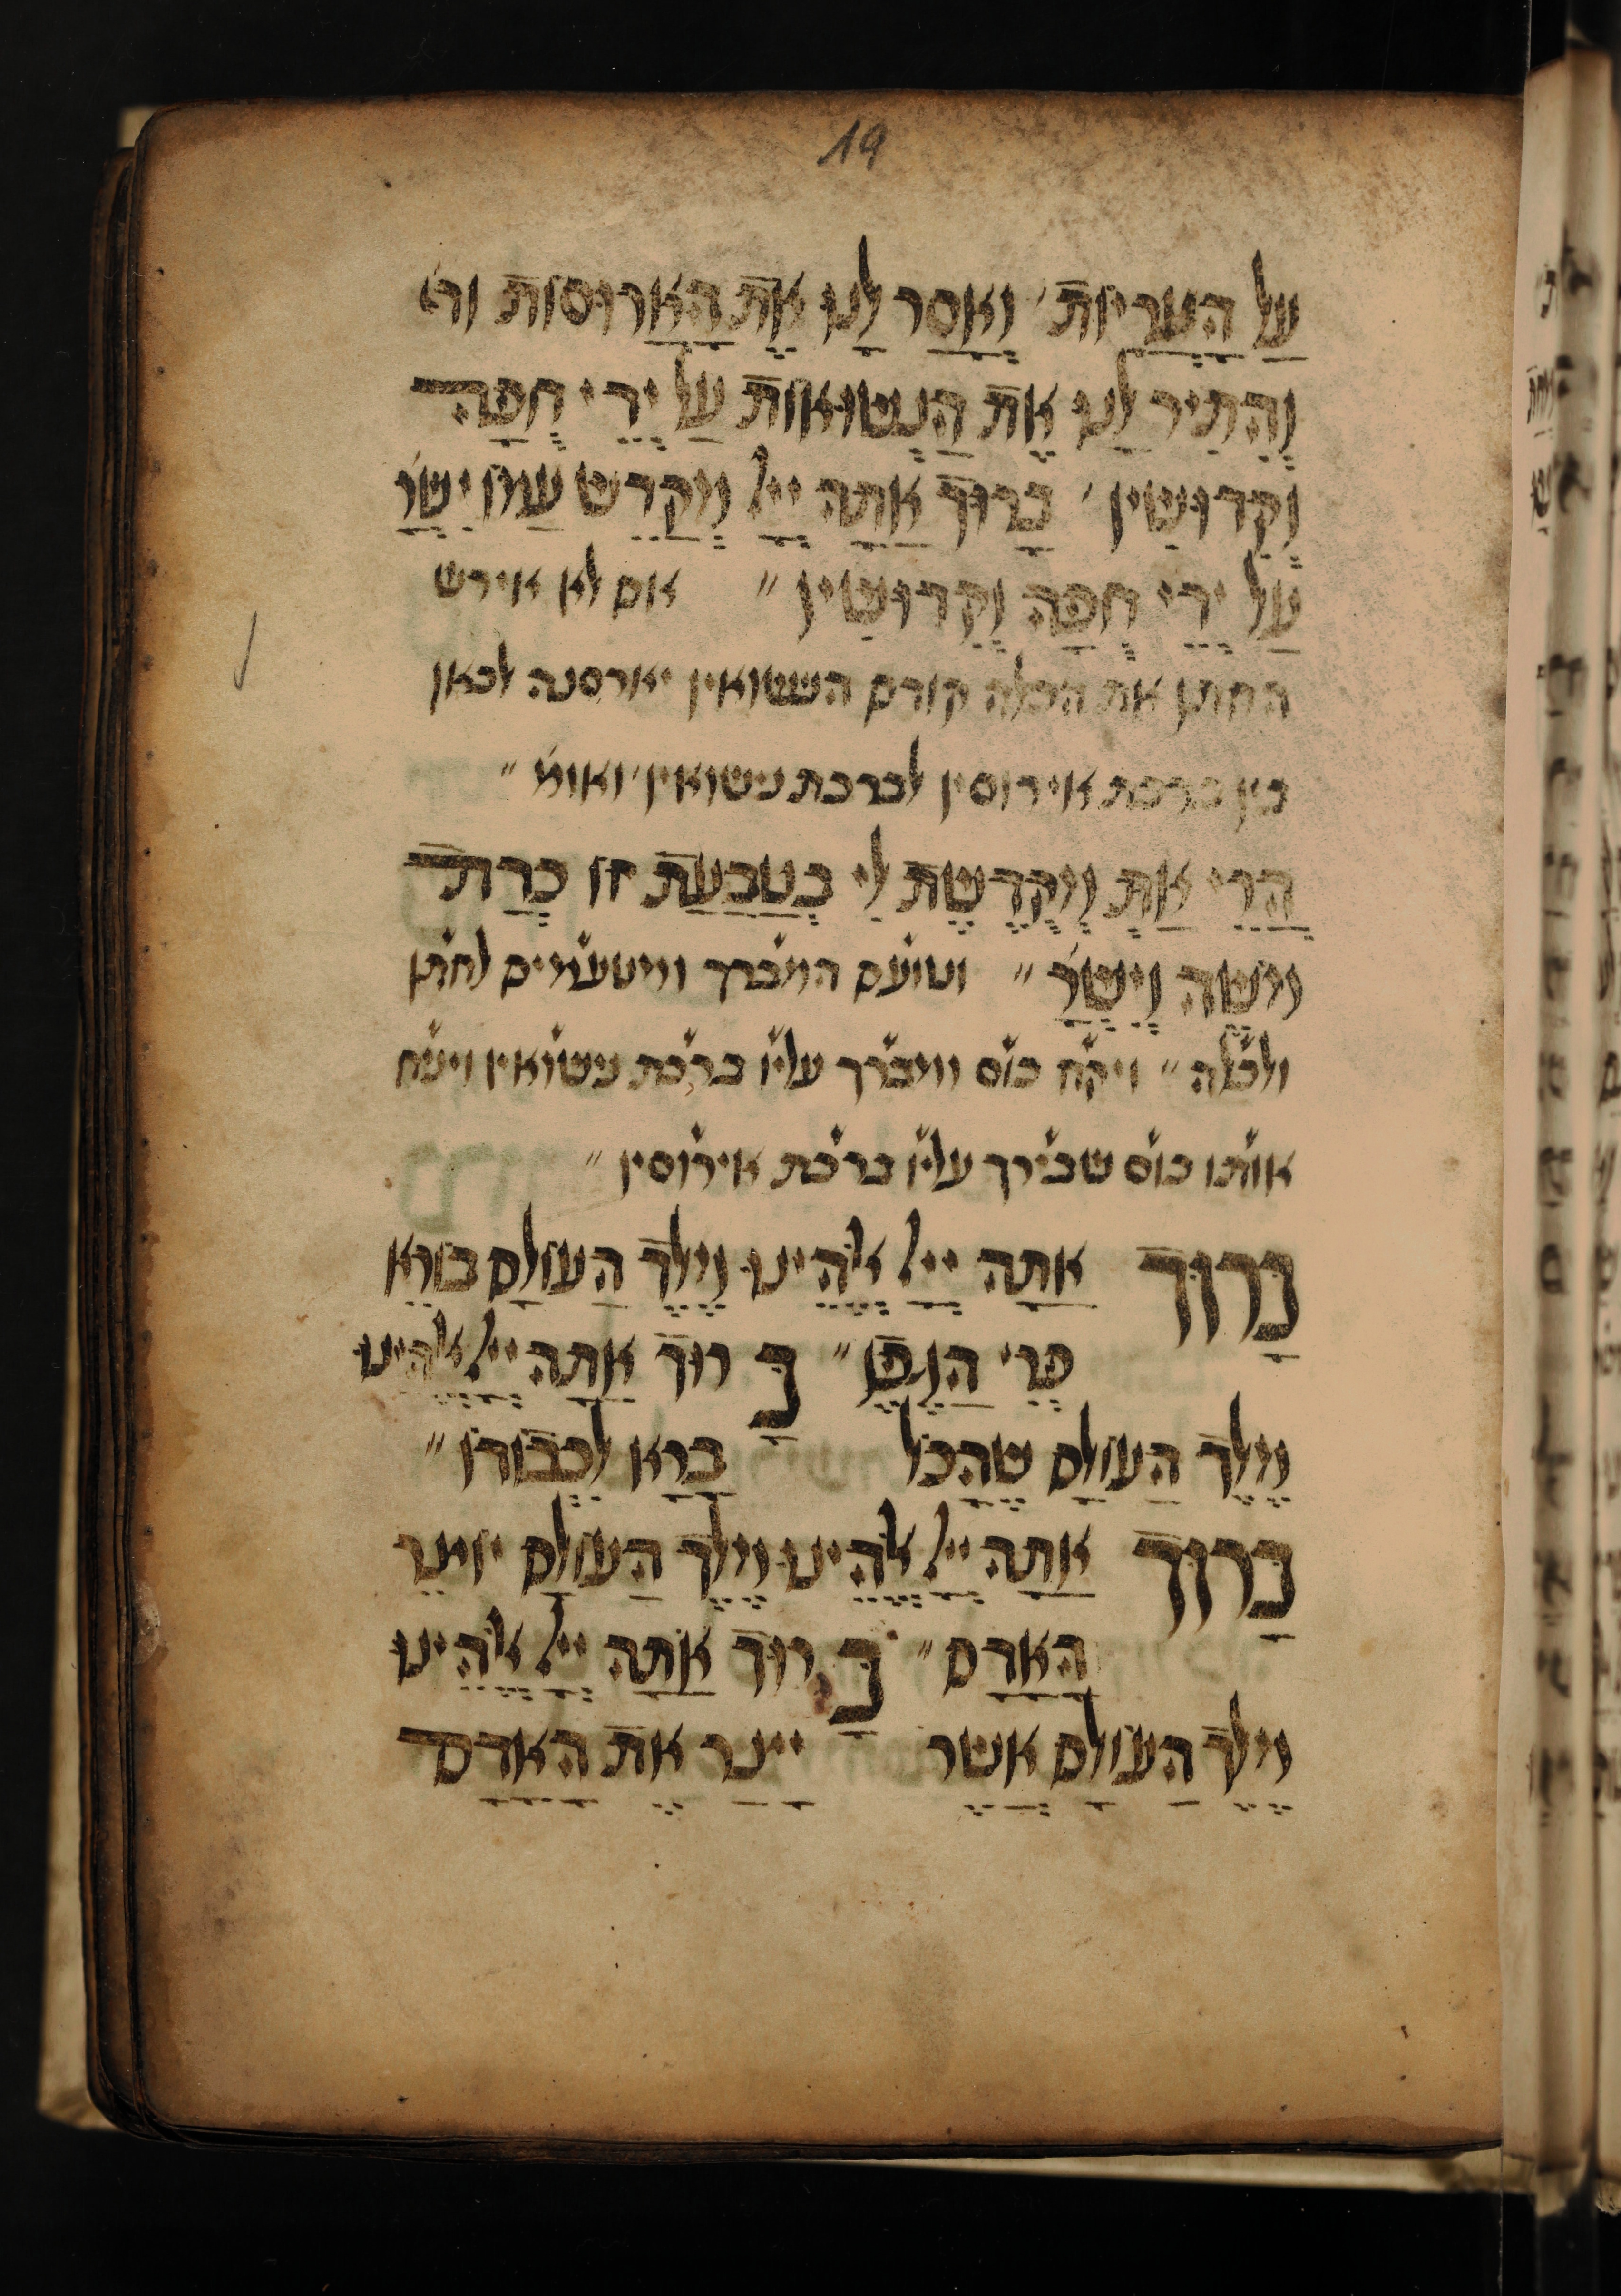 19
עַל הָעֲרָיוֹת׳ וְאָסַר לָנוּ אֶת הָאֲרוּסוֹת
וְהִתִּיר לָנוּ אֶת הַנְשׂוּאוֹת עַל יְדֵי חֻפָּה
וְקִדּוּשִׁין׳ בָּרוּךְ אַתָּה יְיָ מְקַדֵּשׁ עַמּוֹ יִשְׂרָ׳
עַל יְדֵי חֻפָּה וְקִדּוּשִׁין״ אם לא אירש
החתן את הכלה קודם הנשואין יארסנה לכאן
בין ברכת אירוסין לברכת נישואין׳ ואומ׳״
הֲרֵי אַתְּ מְקֻדֶּשֶׁת לִי בְּטַבַּעַת זו כְּדָת
מֹשֶׁה וְיִשְׂרָ׳״ וטועם המברך ומטעמים לחתן
ולכלה״ ויקח כוס ויברך עליו ברכת נישואין ויניח
אותו כוס שבירך עליו ברכת אירוסין״
בָּרוּךְ אַתָּה יְיָ אֱלֹהֵינוּ מֶלֶךְ הַעוֹלָם בּוֹרֵא
פְּרִי הַגֶּפֶן״ בָּרוּךְ אַתָּה יְיָ אֱלֹהֵינוּ
מֶלֶךְ הַעוֹלָם שֶׁהַכֹּל בָּרָא לִכְבוֹדוֹ״
בָּרוּךְ אַתָּה יְיָ אֱלֹהֵינוּ מֶלֶךְ הַעוֹלָם יוֹצֵר
הָאָדָם״ בָּרוּךְ אַתָּה יְיָ אֱלֹהֵינוּ
מֶלֶךְ הַעוֹלָם אֲשֶׁר יָצַר אֶת הָאָדָם